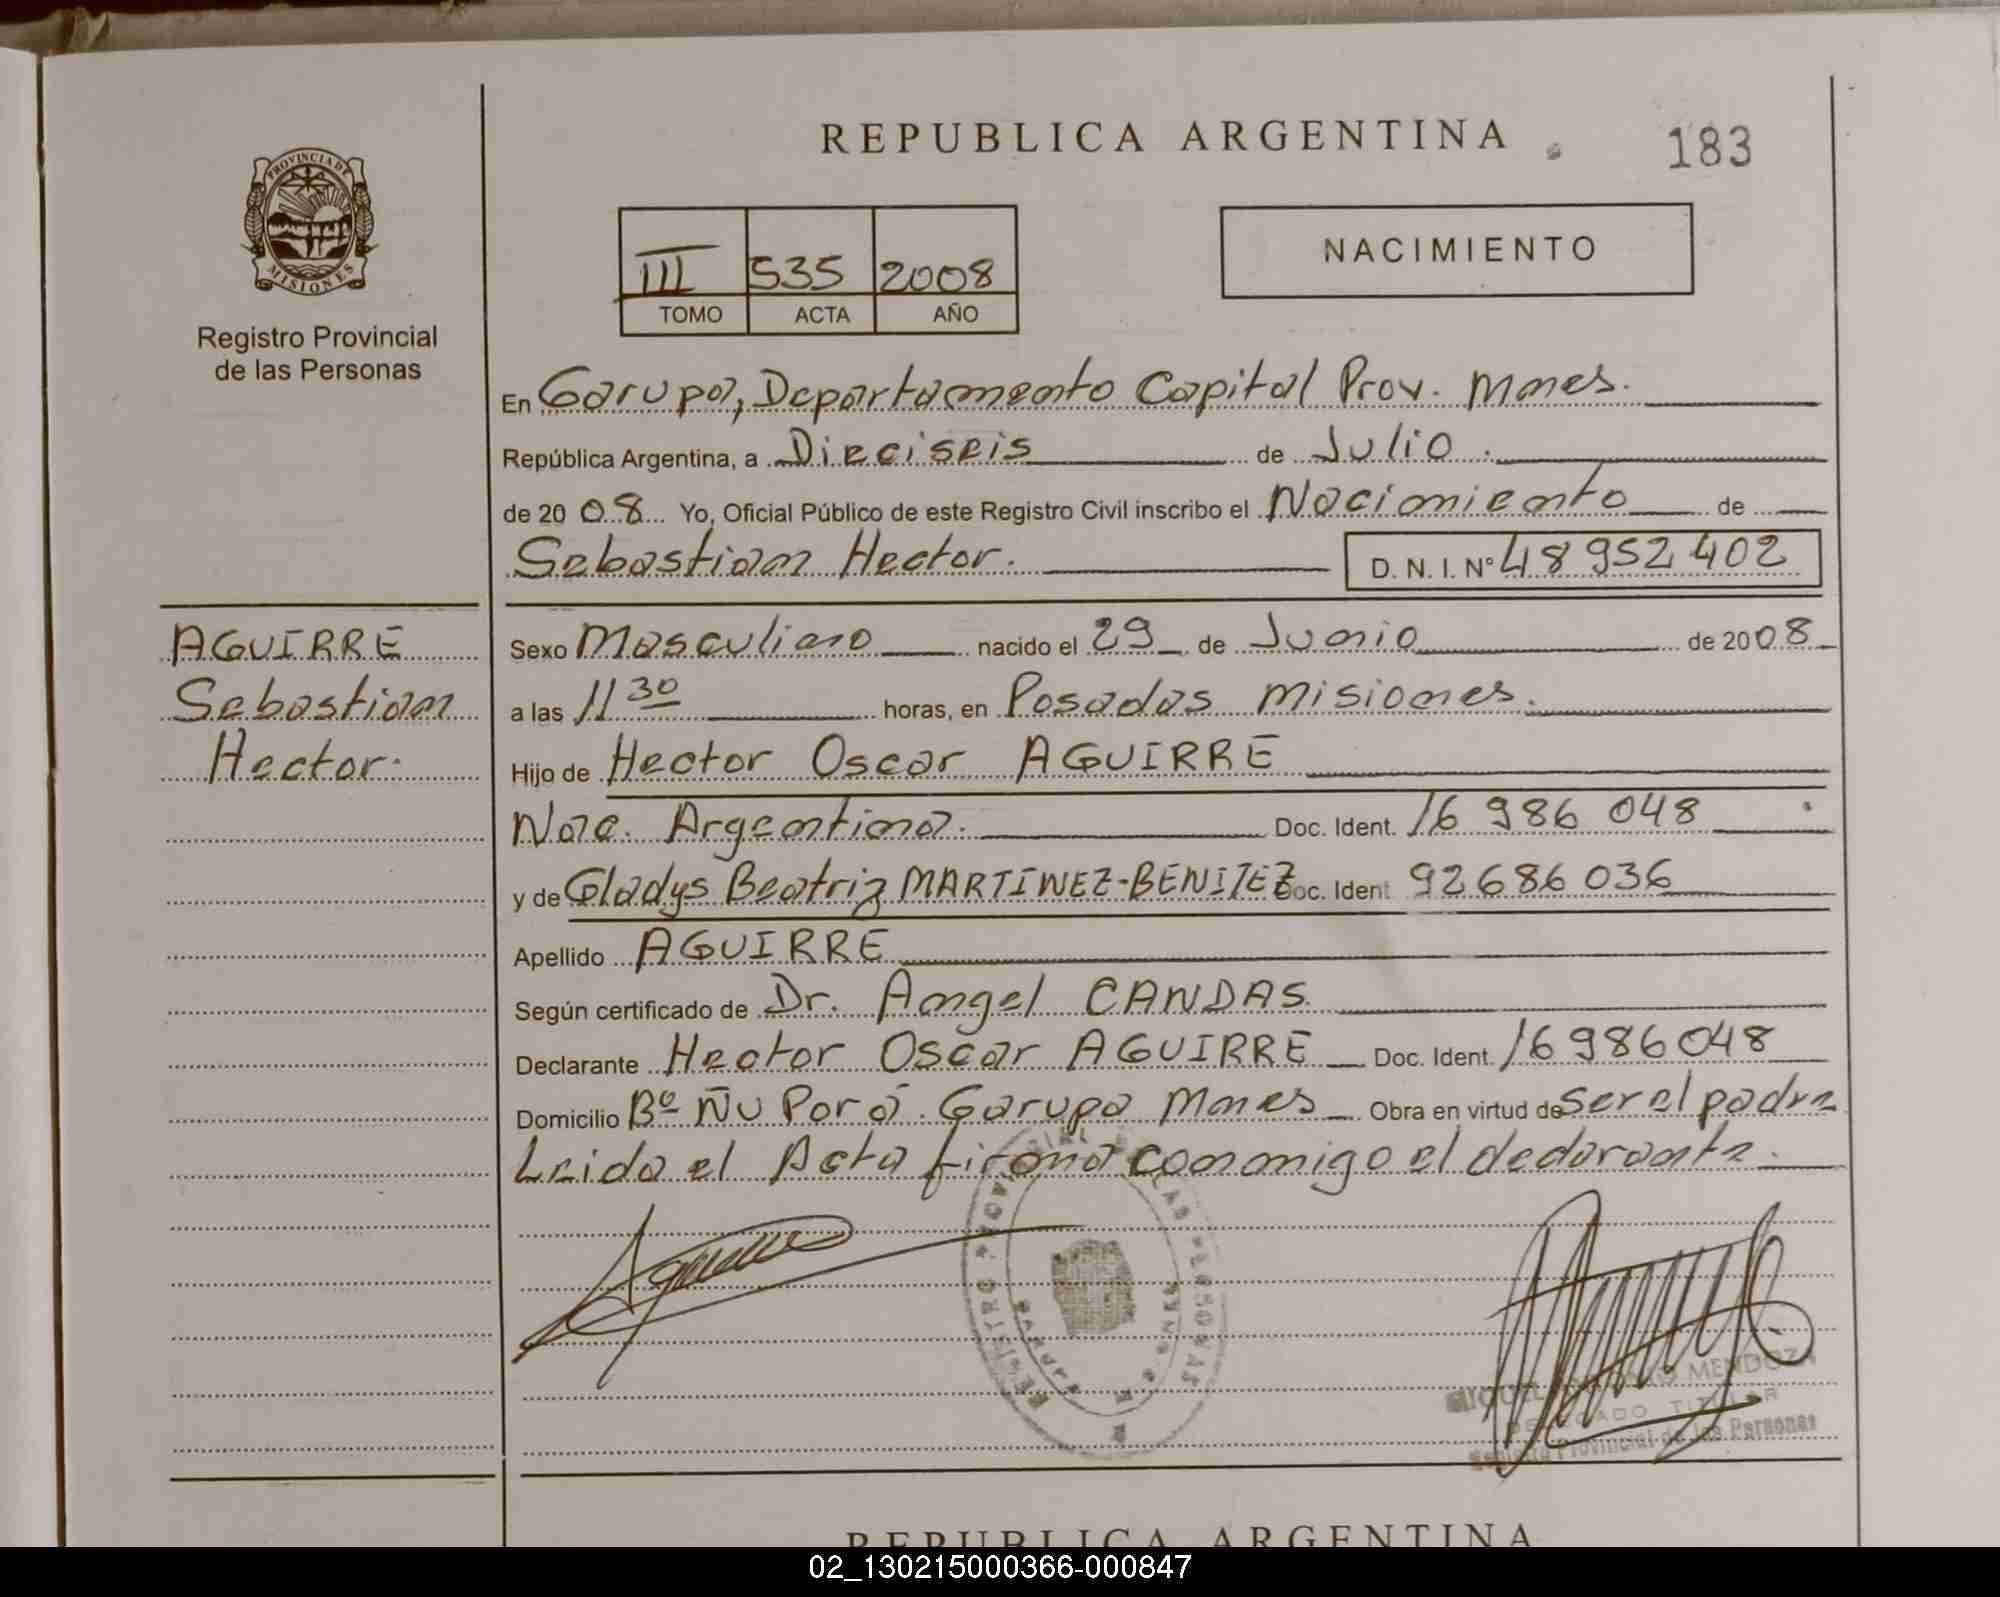 REPUBLICA ARGENTINA
183
PROVINCIA DE
MISIONES
Registro Provincial
de las Personas
III 535 2008
TOMO ACTA AÑO
NACIMIENTO
En Garupa, Departamento Capital Prov. Mnes.
República Argentina, a Dieciseis de Julio.
de 2008 Yo, Oficial Público de este Registro Civil inscribo el Nacimiento de
Sebastian Hector. D. N. I. Nº 48952402
AGUIRRE
Sebastian
Hector.
Sexo Masculino nacido el 29 de Junio de 2008
a las 11 30 horas, en Posadas Misiones.
Hijo de Hector Oscar AGUIRRE
Nac. Argentina. Doc. Ident. 16 986 048
y de Gladys Beatriz MARTINEZ-BENITEZ Doc. Ident 92686036
Apellido AGUIRRE
Según certificado de Dr. Angel CANDAS.
Declarante Hector Oscar AGUIRRE Doc. Ident. 16986048
Domicilio Bº Ñu Porá. Garupa Mnes Obra en virtud de ser el padre
Leida el Acta firma conmigo el declarante.
REGISTRO PROVINCIAL DE LAS PERSONAS
MENDOZA
DELEGADO TITULAR
Registro Provincial de las Personas
REPUBLICA ARGENTINA
02_130215000366-000847